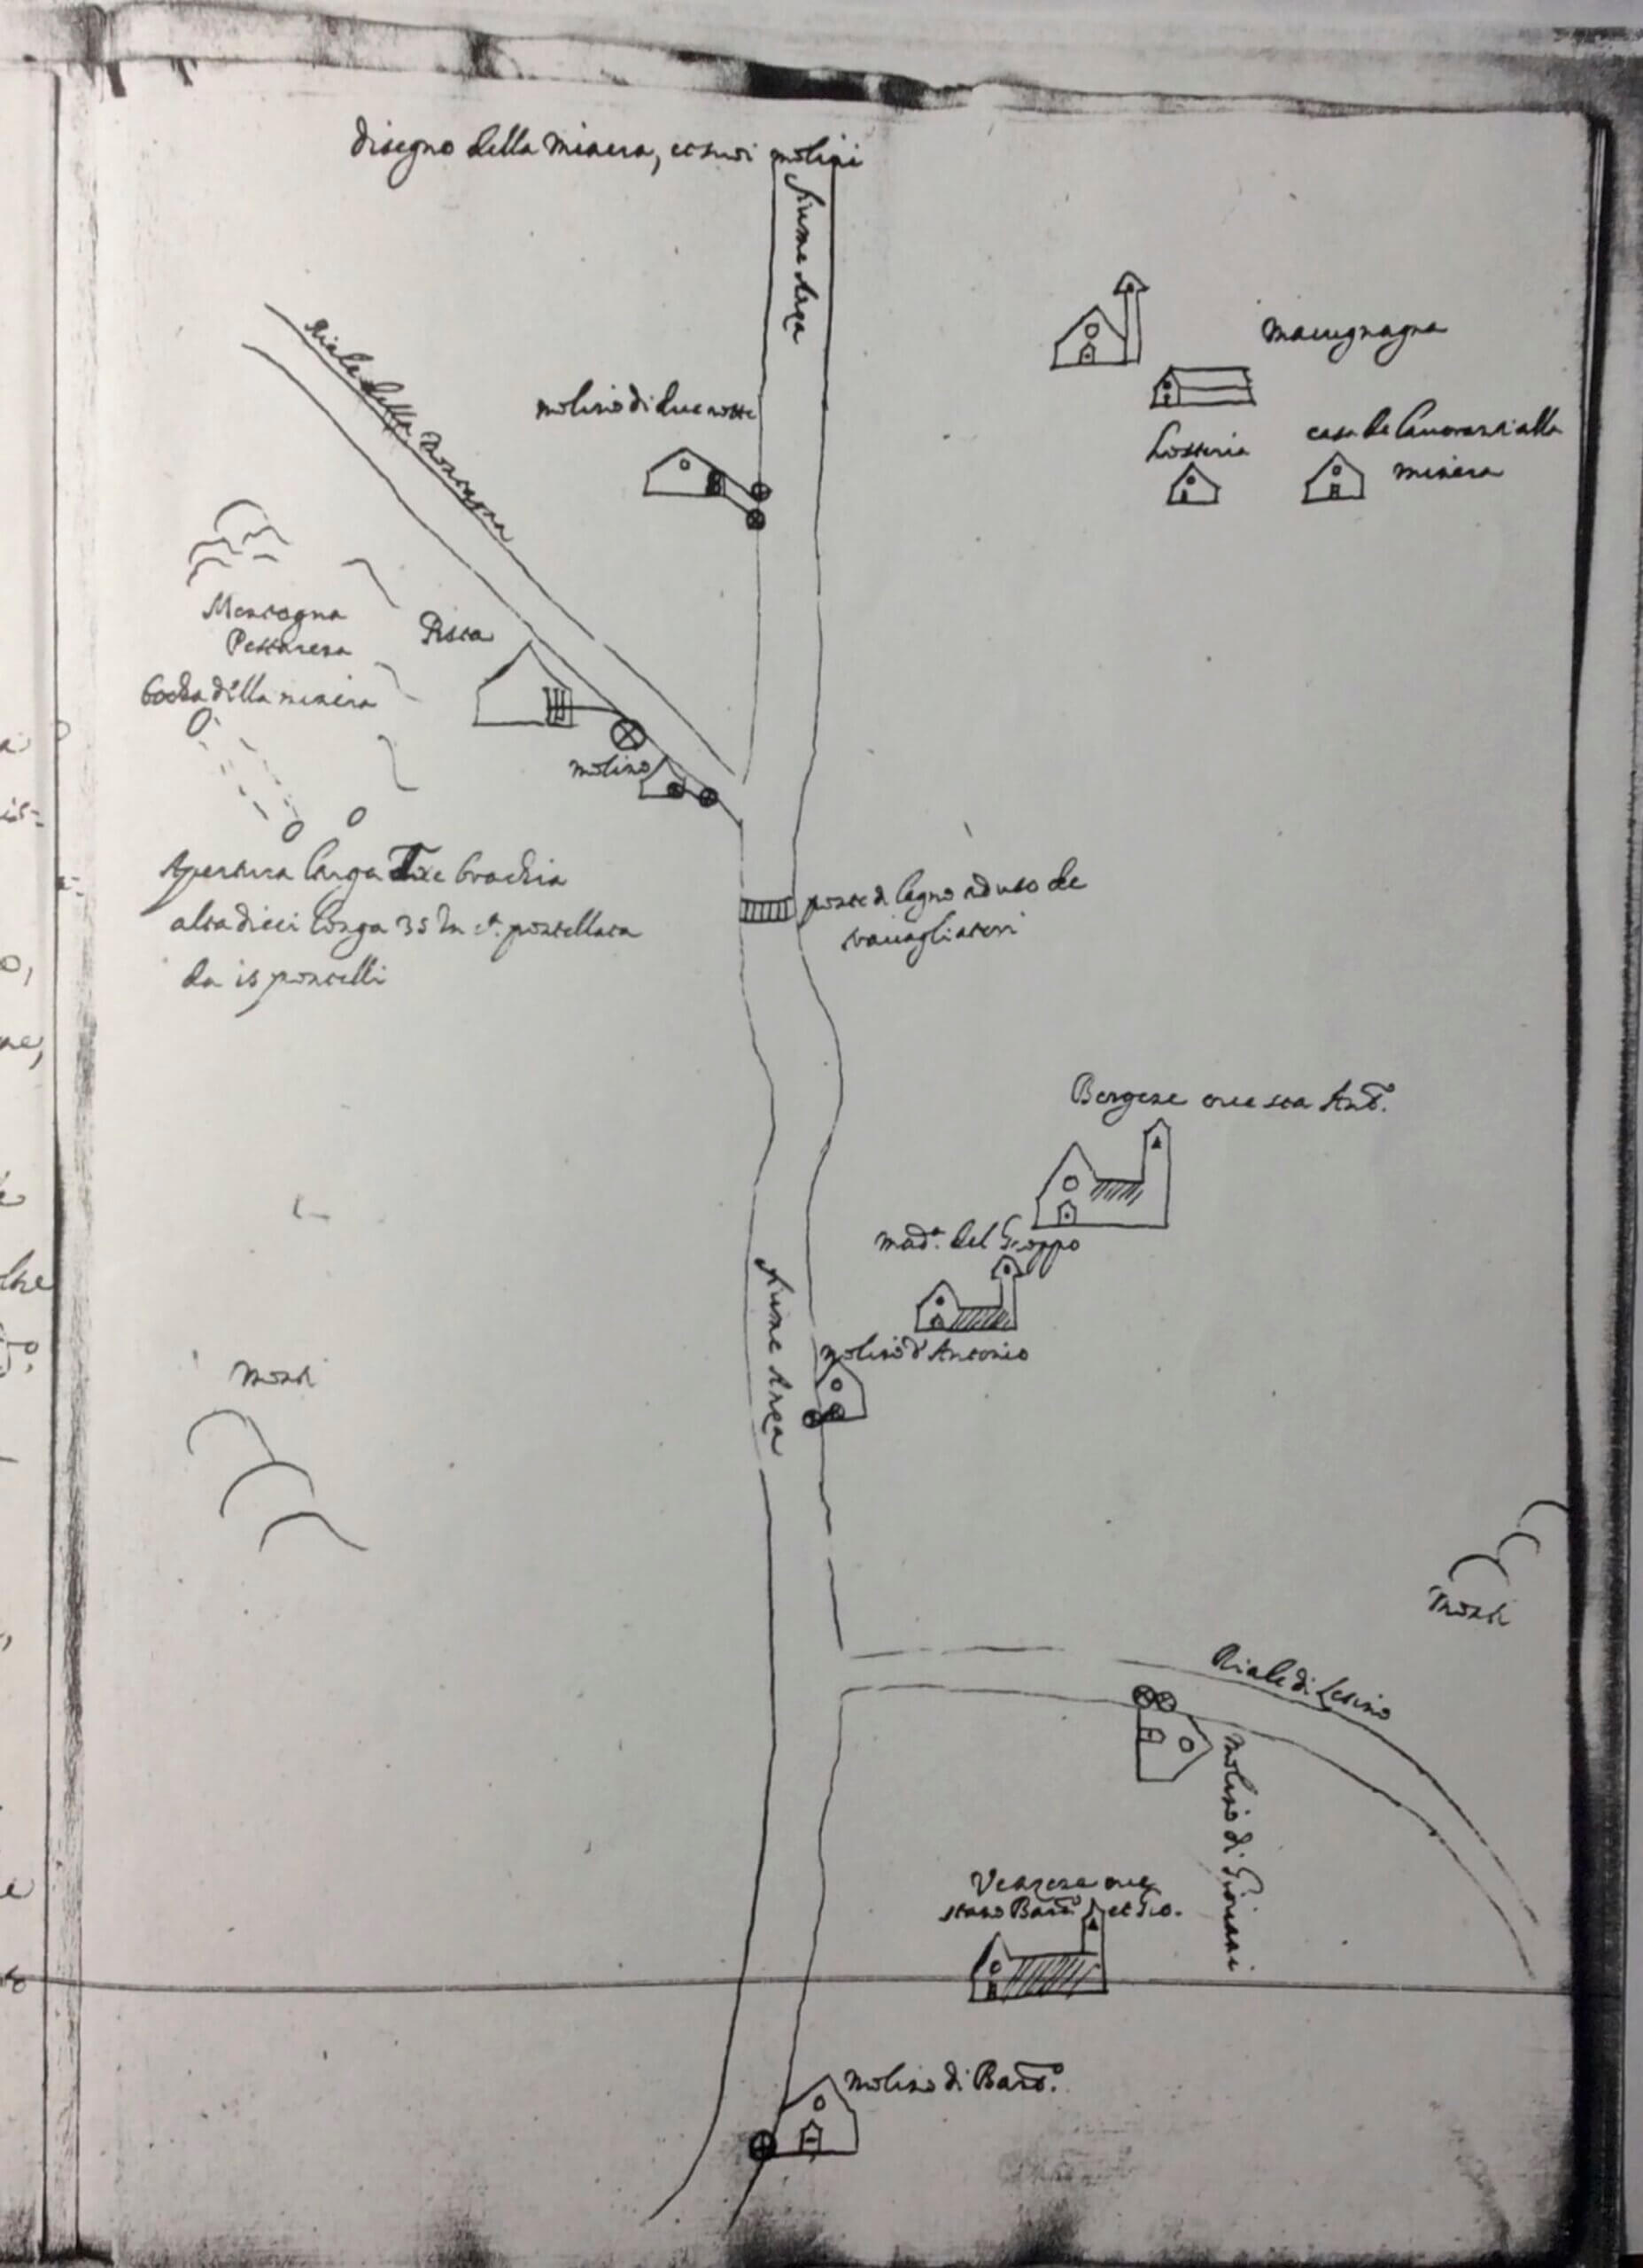 disegno della minera, et suoi molini
fiume Anza
Macugnaga
Riale della Montagna
molino di due rotte
L'osteria
casa de lavoranti alla
minera
Montagna
Pestarena
Pista
bocha della minera
molino
Apertura larga Tre brachia
alta dieci longa 35 In pontellata
da is pontelli
ponte di legno ad uso de
travagliatori
Borgone oue sta Ant.º
mad.ª del Groppo
molino d'Antonio
fiume Anza
Monti
Monti
Riale di
molino di Giovanni
oue
stano Bart.º et Gio.
molino di Bart.º